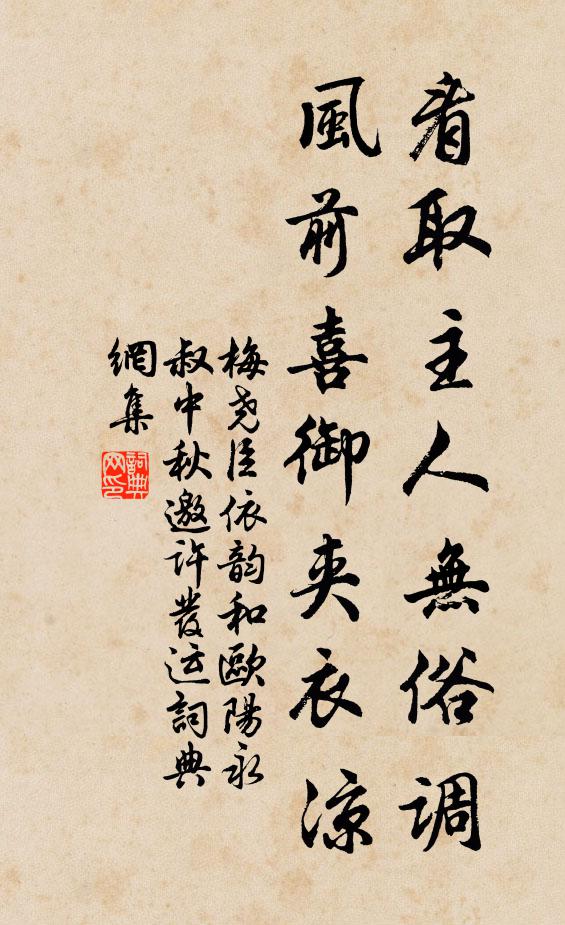 看取主人無俗调
風前喜御夹衣涼
梅尧臣依韵和歐陽永
叔中秋邀许發运詞典
網集
詞典网印